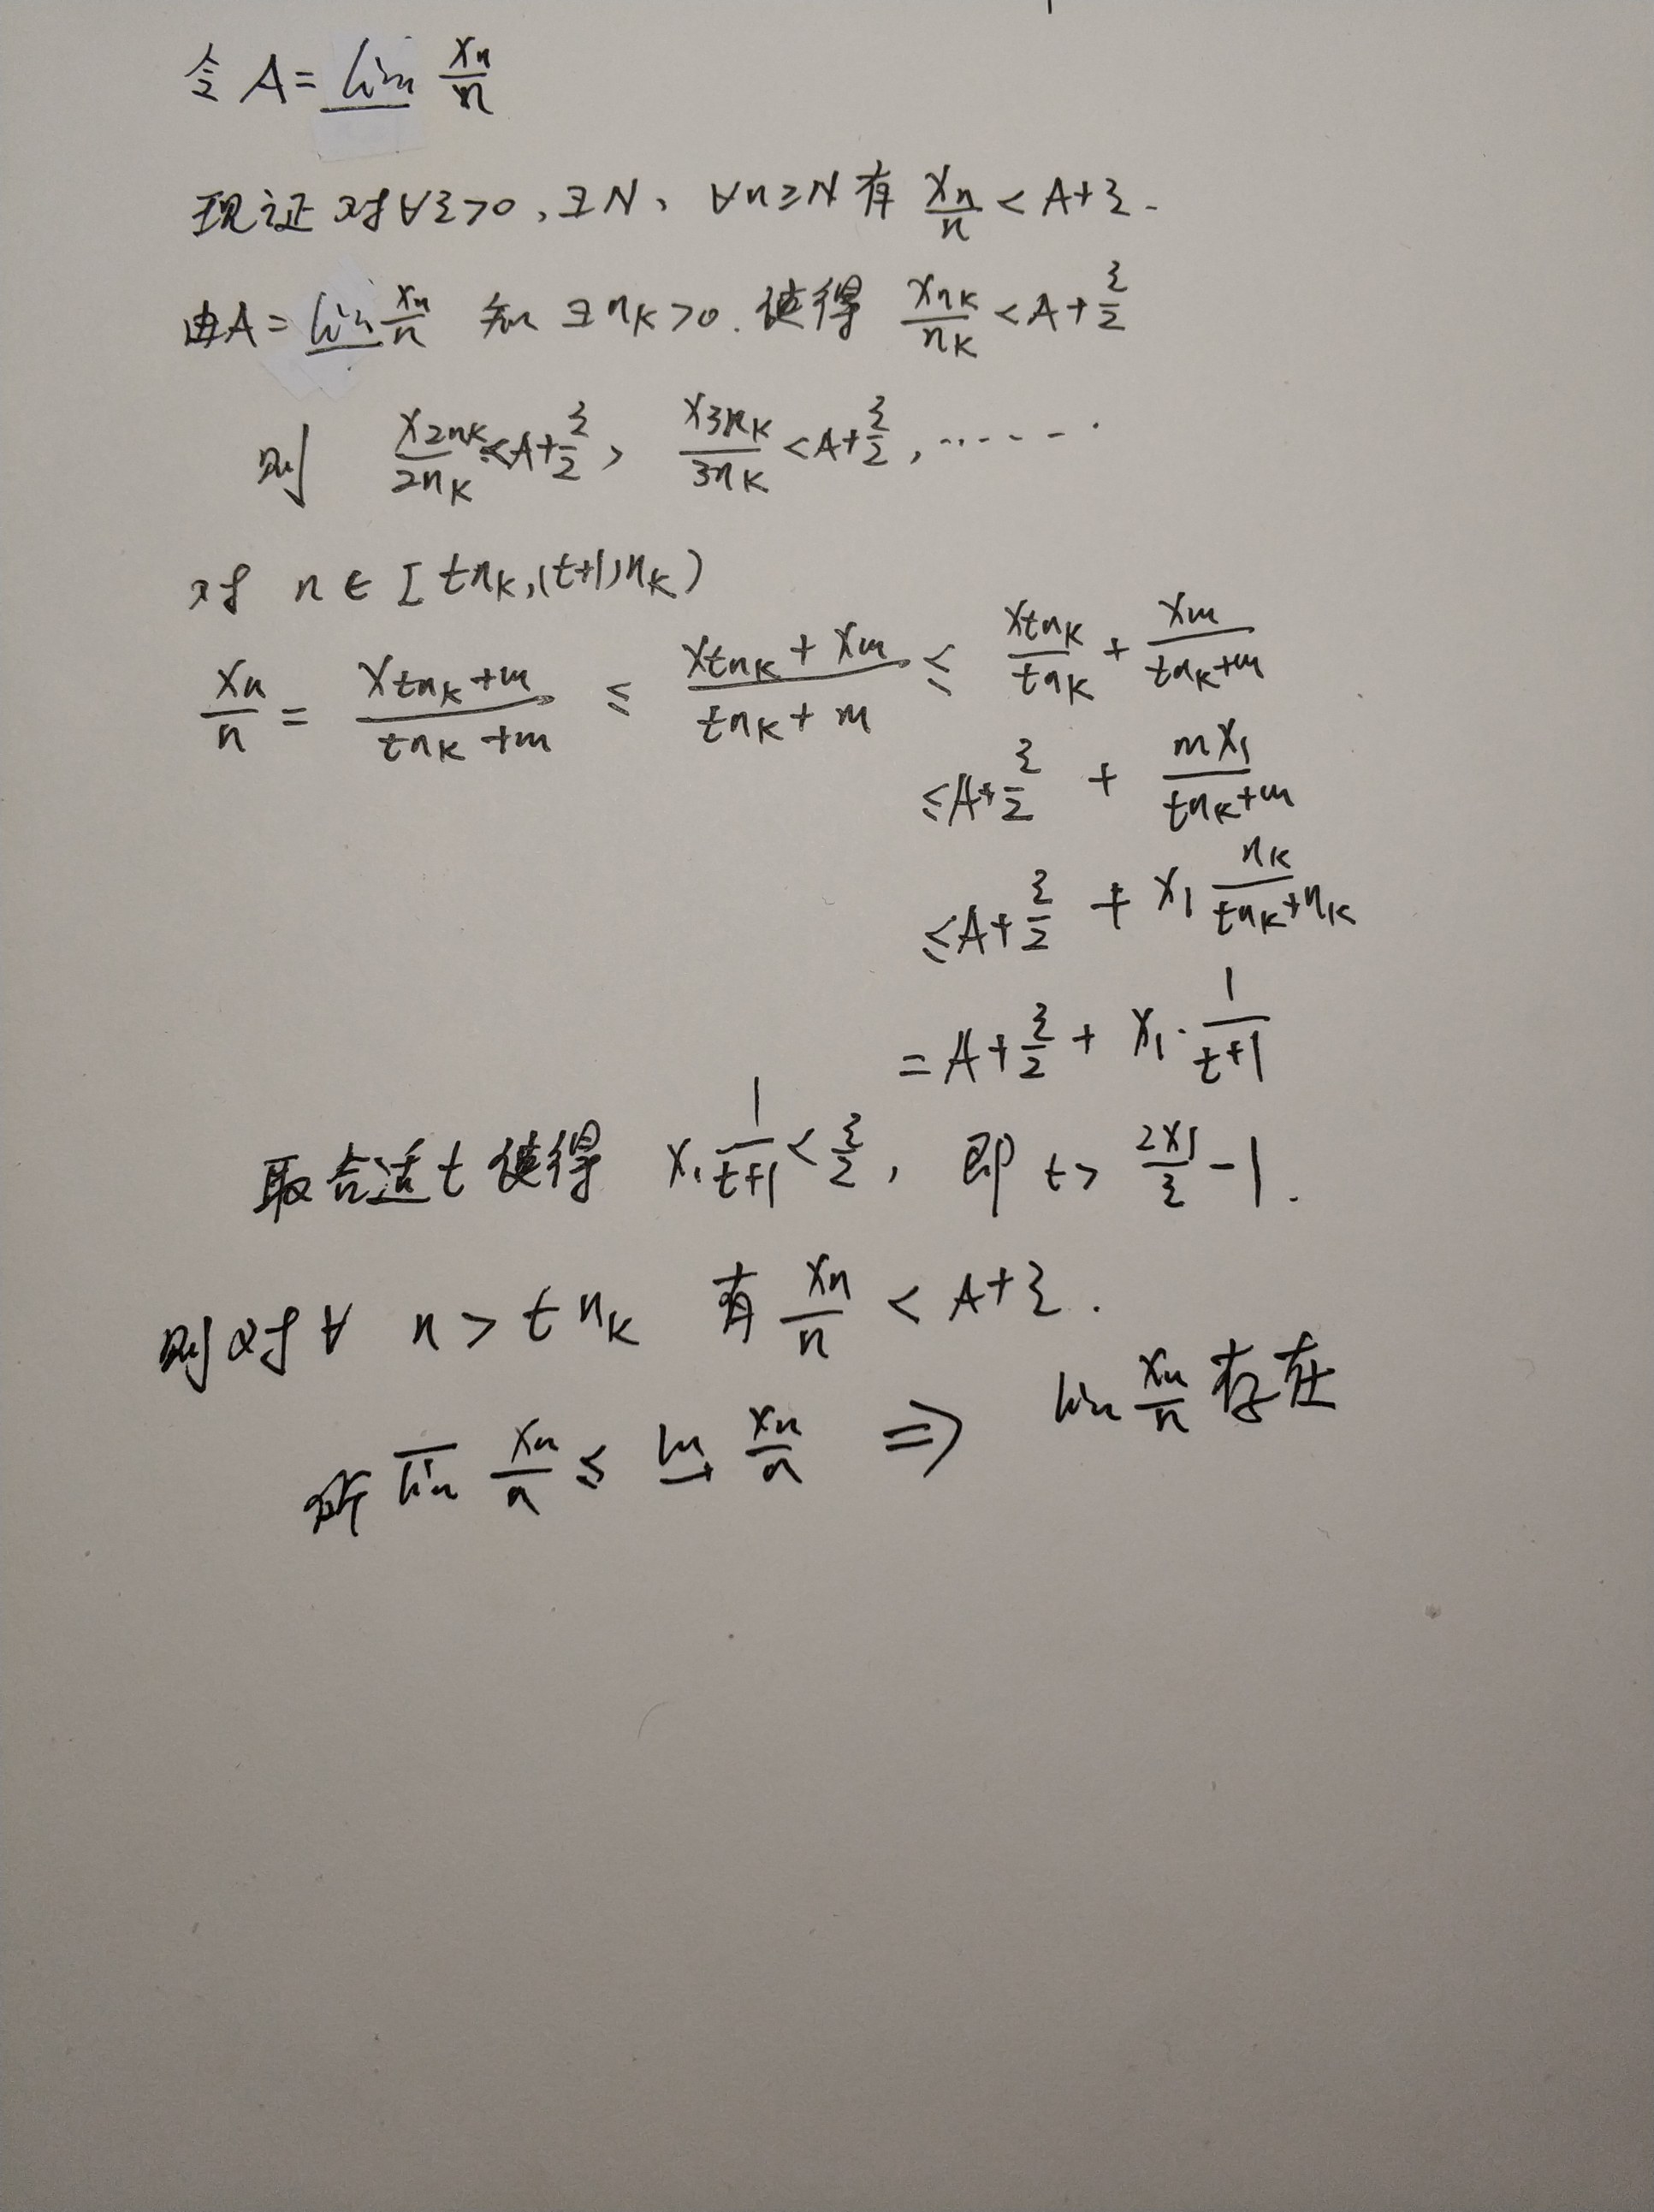 令 A = \underline{lim} \frac{x_n}{n}
现证 对∀ε>0, ∃N, ∀n≥N 有 \frac{x_n}{n} < A+ε.
由A = \underline{lim} \frac{x_n}{n} 知 ∃n_k>0. 使得 \frac{x_{n_k}}{n_k} < A+\frac{ε}{2}
则 \frac{x_{2n_k}}{2n_k} < A+\frac{ε}{2}, \frac{x_{3n_k}}{3n_k} < A+\frac{ε}{2}, ……
对 n ∈ [tn_k, (t+1)n_k)
\frac{x_n}{n} = \frac{x_{tn_k+m}}{tn_k+m} ≤ \frac{x_{tn_k}+x_m}{tn_k+m} ≤ \frac{x_{tn_k}}{tn_k} + \frac{x_m}{tn_k+m}
≤ A+\frac{ε}{2} + \frac{mx_1}{tn_k+m}
≤ A+\frac{ε}{2} + x_1 \frac{n_k}{tn_k+n_k}
= A+\frac{ε}{2} + x_1·\frac{1}{t+1}
取合适t使得 x_1 \frac{1}{t+1} < \frac{ε}{2}, 即 t > \frac{2x_1}{ε} - 1.
则对∀ n > tn_k 有 \frac{x_n}{n} < A+ε.
所 \overline{lim} \frac{x_n}{n} ≤ \underline{lim} \frac{x_n}{n} ⇒ lim \frac{x_n}{n} 存在